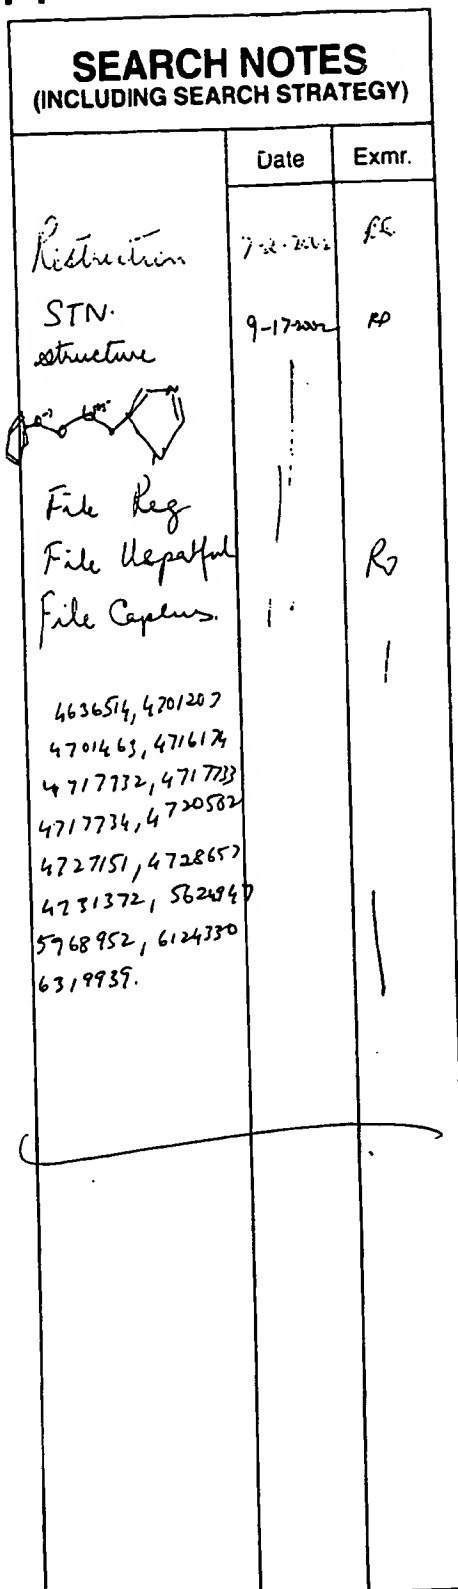 SEARCH NOTES
(INCLUDING SEARCH STRATEGY)
Date Exmr.
Restriction
STN. 9-17-2002
structure
File Reg
File Uspatful
File Caplus.
4636514, 4701207
4701463, 4716174
4717732, 4717733
4717734, 4720582
4727151, 4728657
4731372, 5624940
5968952, 6124330
6319939.